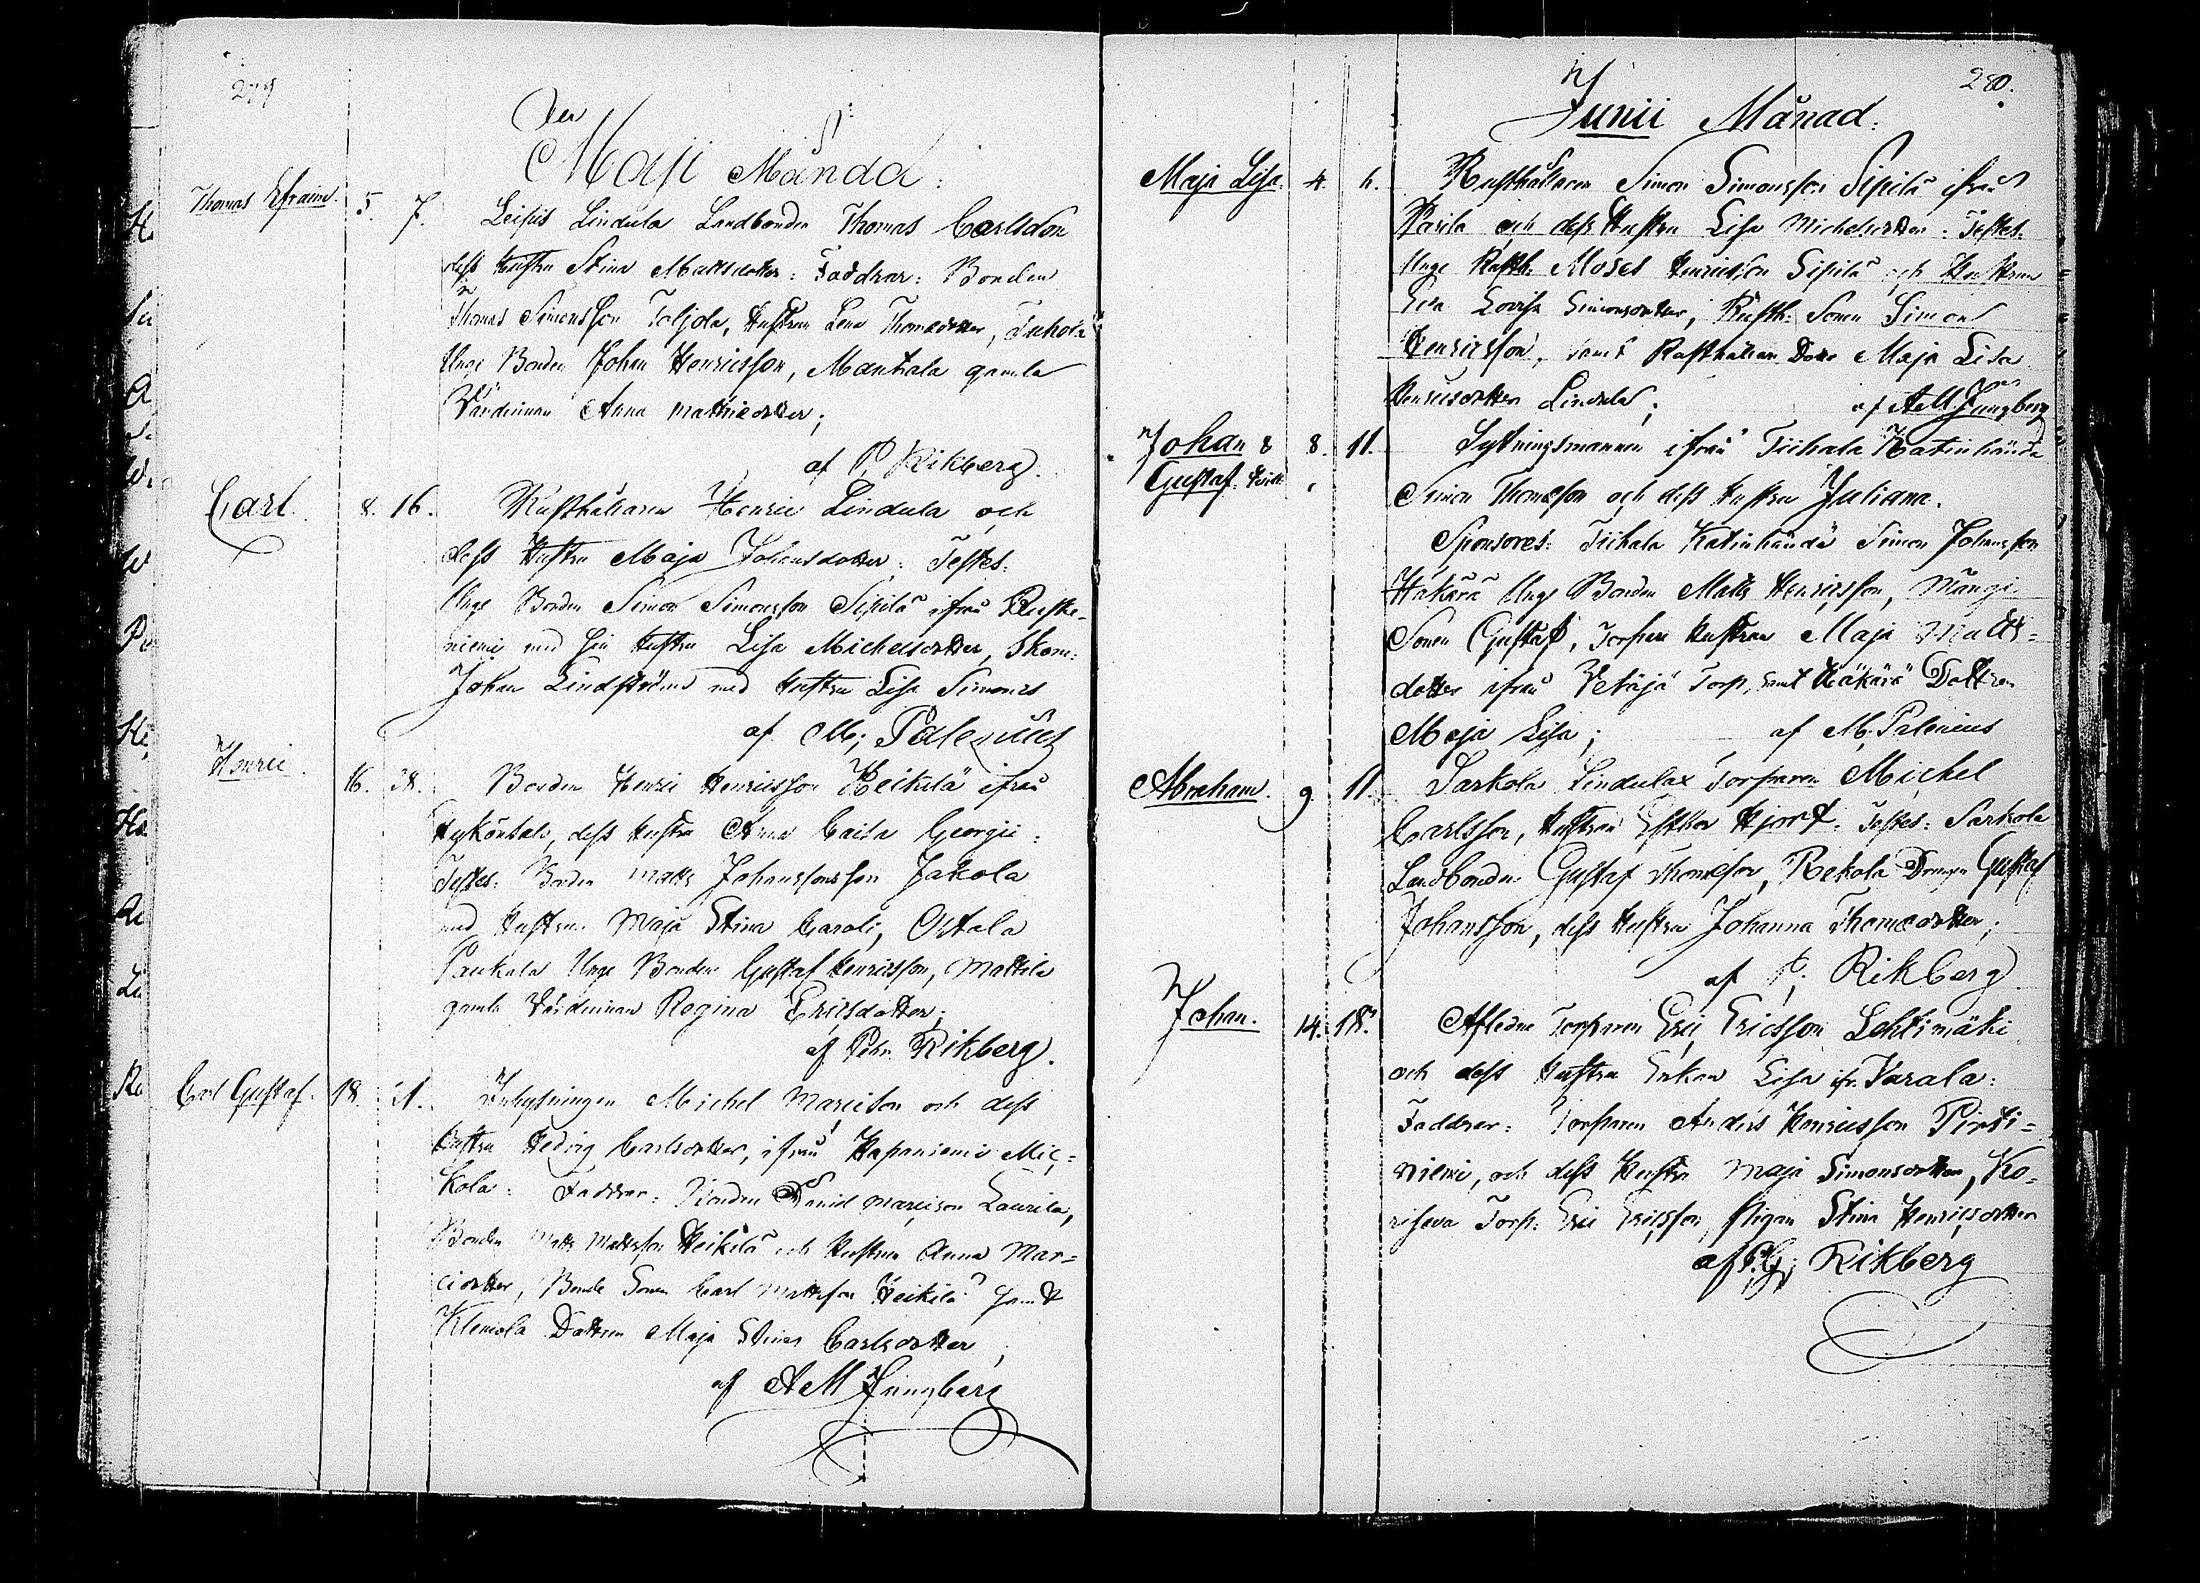 279
Den
Maji Månda:
Thomas Efraim. 5. 7. Leipis Lindula Landbonden Thomas Carlsson
dess Hustru Stina Mattsdotter: Faddrar: Bonden
Thomas Simonsson Toljola, Hustrun Lena Thomædotter, Tuhola
Unge Bonden Johan Henricsson, Mantala gamla
Värdinnan Anna Mathiedotter;
af P. Rikberg.
Carl. 8. 16. Rusthållaren Henric Lindula och
dess Hustru Maja Johansdotter: Testes:
Unge Bonden Simon Simonsson Sipilä ifrån
niemi med sin Hustru Lisa Michelsdotter, Skom:
Johan Lindström med Hustru Lisa Simons
af M; Palenius
Henric. 16. 28. Bonden Henric Henricsson Heikilä ifrån
dess Hustru Anna Caisa Georgii:
Testes: Bonden Matts Johanssonsson Jakola
med Hustrun Maja Stina Caroli,
Unge Bonden Gustaf Henricsson, Mattila
gamla Värdinnan Regina Ericsdotter;
af Pehr Rikberg.
Carl Gustaf. 18. 21. Inhysningen Michel Marcison och dess
Hustru Hedvig Carlsdotter, ifrån Hapaniemi Mic=
kola: Faddrar: Bonden David Marcison Laurila,
Bonden Matts Mattsson Heikilä och Hustrun Anna Mar=
cidotter, Bonde Sonen Carl Mattsson Heikilä samt
Klemola Dottren Maja Stina Carlsdotter;
af AM Ljungberg
280.
Junii Månad:
Maja Lisa. 4. 6. Rusthållaren Simon Simonsson Sipilä ifrån
och dess Hustru Lisa Michelsdotter: Testes:
Unge Rusth: Moses Henricsson Sipilä och Hustrun
Eva Lovisa Simonsdotter, Rusth: Sonen Simon
Henricsson, samt Rusthållare Dottr Maja Lisa
Henricsdotter Lindula;
af AM Ljungberg
Johan & 8. 11. Sytningsmannen ifrån Tiihala Katinhändä
Gustaf. Simon Thomæson och dess Hustru Juliana.
Sponsores: Tiihala Katinhändä Simon Johansson
Häkärä Unge Bonden Matts Henricsson,
Sonen Gustaf, Torpare Hustrun Maja Matts=
dotter ifrån Vetäjä Torp, samt Häkärä Dottren
Maja Lisa; af M; Palenius
Abraham. 9. 11. Sarkola Lindulax Torparen Michel
Carlsson, Hustrun Esther Hjort. Testes: Sarkola
Landbonden Gustaf Thomæson, Rekola Drengen Gustaf
Johansson, dess Hustru Johanna Thomædotter;
af P; Rikberg
Johan. 14. 18. Afledne Torparen Eric Ericsson Lehtimäki
och dess Hustru Enkan Lisa ifr. Varala:
Faddrar: Torparen Anders Henricsson Pirti=
niemi, och dess Hustru Maja Simonsdotter, Ko=
riseva Torp: Eric Ericsson, Pigan Stina Henricsdotter
af P.G; Rikberg